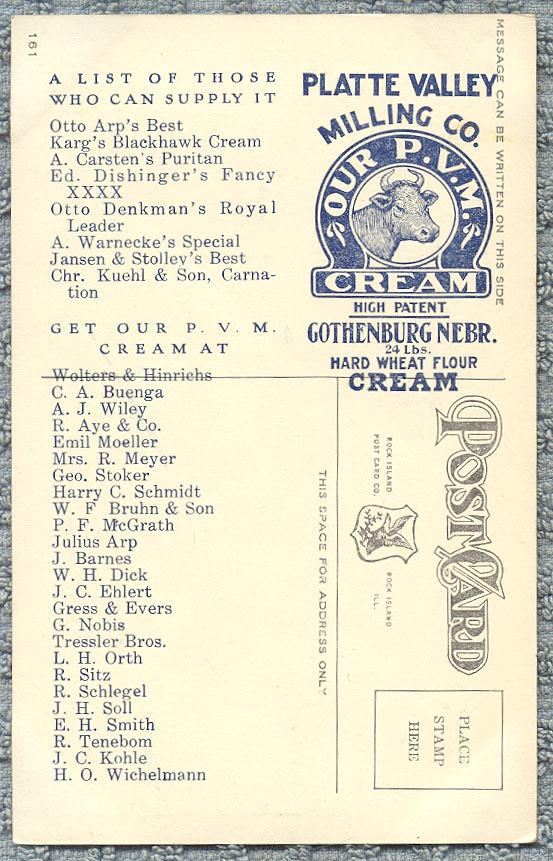 161
A LIST OF THOSE
WHO CAN SUPPLY IT
Otto Arp's Best
Karg's Blackhawk Cream
A. Carsten's Puritan
Ed. Dishinger's Fancy
XXXX
Otto Denkman's Royal
Leader
A. Warnecke's Special
Jansen & Stolley's Best
Chr. Kuehl & Son, Carna-
tion
GET OUR P. V. M.
CREAM AT
Wolters & Hinrichs
C. A. Buenga
A. J. Wiley
R. Aye & Co.
Emil Moeller
Mrs. R. Meyer
Geo. Stoker
Harry C. Schmidt
W. F Bruhn & Son
P. F. McGrath
Julius Arp
J. Barnes
W. H. Dick
J. C. Ehlert
Gress & Evers
G. Nobis
Tressler Bros.
L. H. Orth
R. Sitz
R. Schlegel
J. H. Soll
E. H. Smith
R. Tenebom
J. C. Kohle
H. O. Wichelmann
PLATTE VALLEY
MILLING CO.
OUR P.V.M.
CREAM
HIGH PATENT
GOTHENBURG NEBR.
24 Lbs.
HARD WHEAT FLOUR
CREAM
MESSAGE CAN BE WRITTEN ON THIS SIDE
POST CARD
ROCK ISLAND
POST CARD CO.
ROCK ISLAND
ILL.
THIS SPACE FOR ADDRESS ONLY
PLACE
STAMP
HERE